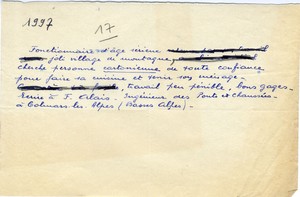 1997
17
Fonctionnaire d'âge sérieux
joli village de montagne,
cherche personne de toute confiance
pour faire sa cuisine et tenir son ménage.
travail peu pénible, bons gages.
à F. Alais. Ingénieur des Ponts et Chaussées
à Colmars les Alpes (Basses Alpes).